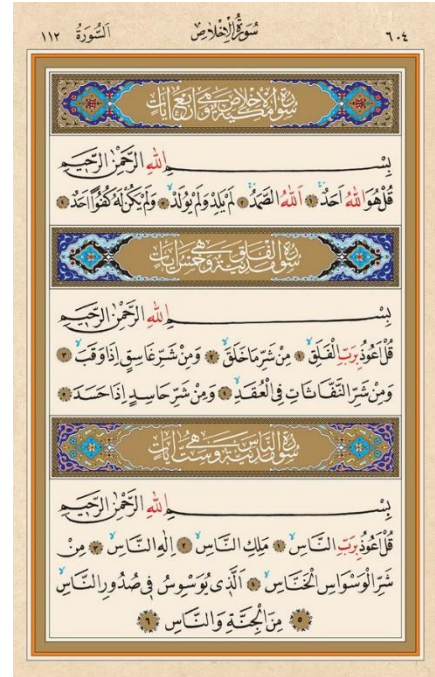 ٦٠٤ سُورَةُ الْاِخْلَاصِ اَلسُّورَةُ ١١٢
سُورَةُ الْاِخْلَاصِ مَكِّيَّةٌ وَهِيَ اَرْبَعُ اٰيَاتٍ
بِسْــــــــمِ اللّٰهِ الرَّحْمٰنِ الرَّحٖيمِ
قُلْ هُوَ اللّٰهُ اَحَدٌۚ ١ اَللّٰهُ الصَّمَدُۚ ٢ لَمْ يَلِدْ وَلَمْ يُولَدْۙ ٣ وَلَمْ يَكُنْ لَهُ كُفُوًا اَحَدٌ ٤
سُورَةُ الْفَلَقِ مَدَنِيَّةٌ وَهِيَ خَمْسُ اٰيَاتٍ
بِسْــــــــمِ اللّٰهِ الرَّحْمٰنِ الرَّحٖيمِ
قُلْ اَعُوذُ بِرَبِّ الْفَلَقِۙ ١ مِنْ شَرِّ مَا خَلَقَۙ ٢ وَمِنْ شَرِّ غَاسِقٍ اِذَا وَقَبَۙ ٣
وَمِنْ شَرِّ النَّفَّاثَاتِ فِي الْعُقَدِۙ ٤ وَمِنْ شَرِّ حَاسِدٍ اِذَا حَسَدَ ٥
سُورَةُ النَّاسِ مَدَنِيَّةٌ وَهِيَ سِتُّ اٰيَاتٍ
بِسْــــــــمِ اللّٰهِ الرَّحْمٰنِ الرَّحٖيمِ
قُلْ اَعُوذُ بِرَبِّ النَّاسِۙ ١ مَلِكِ النَّاسِۙ ٢ اِلٰهِ النَّاسِۙ ٣ مِنْ
شَرِّ الْوَسْوَاسِ الْخَنَّاسِۙ ٤ اَلَّذٖي يُوَسْوِسُ فٖي صُدُورِ النَّاسِۙ
٥ مِنَ الْجِنَّةِ وَالنَّاسِ ٦